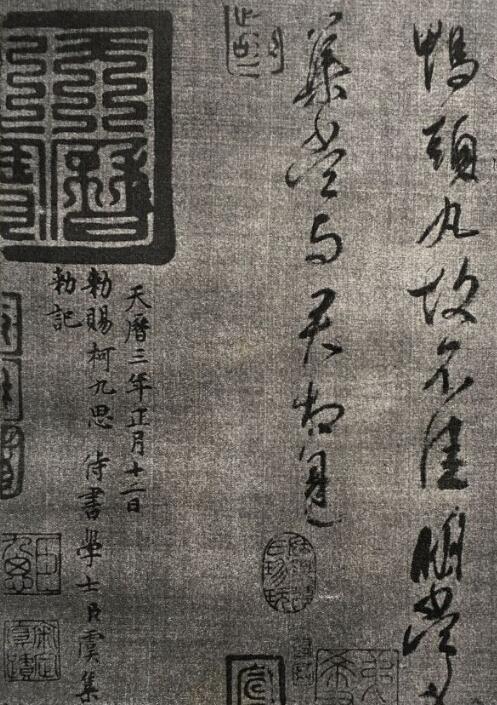 鴨頭丸故不佳明當
集當與君相見
天曆三年正月十二日
勑賜柯九思 侍書學士臣虞集
勑記